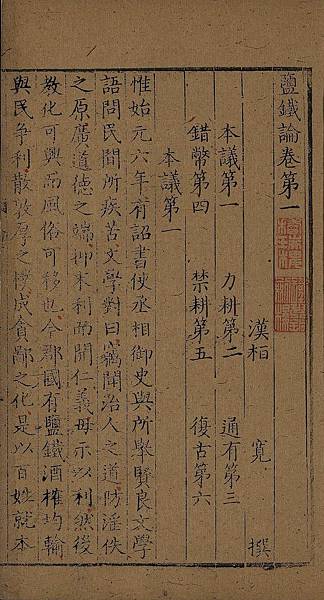 鹽鐵論卷第一
漢桓 寬 撰
本議第一 力耕第二 通有第三
錯幣第四 禁耕第五 復古第六
本議第一
惟始元六年有詔書使丞相御史與所舉賢良文學
語問民間所疾苦文學對曰竊聞治人之道防淫佚
之原廣道德之端抑末利而開仁義毋示以利然後
教化可興而風俗可移也今郡國有鹽鐵酒榷均輸
與民爭利散敦厚之樸成貪鄙之化是以百姓就本